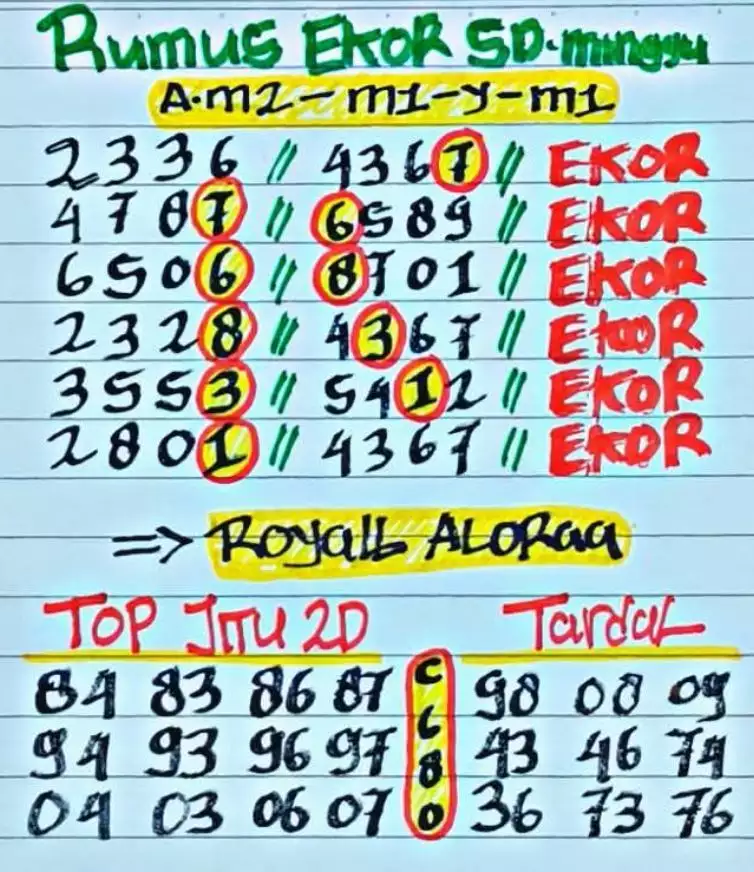 Rumus EKOR SD.minggu
A.m2-m1-y-m1
2336 // 4367 // EKOR
4787 // 6589 // EKOR
6506 // 8701 // EKOR
2328 // 4367 // EKOR
3553 // 5412 // EKOR
2801 // 4367 // EKOR
=> ROyaLL ALORaa
TOP JITU 2D Tardal
84 83 86 87 C 98 08 09
94 93 96 97 6 8 43 46 74
04 03 06 07 0 36 73 76